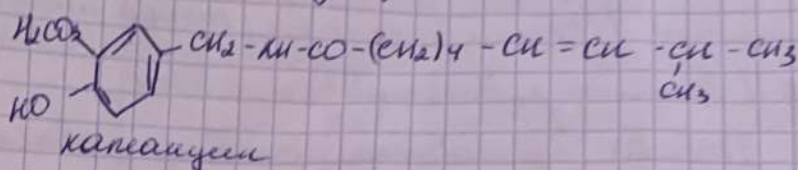 H₂CO₃
CH₂-NH-CO-(CH₂)4-CH=CH-CH-CH3
HO
CH₃
капсаицин